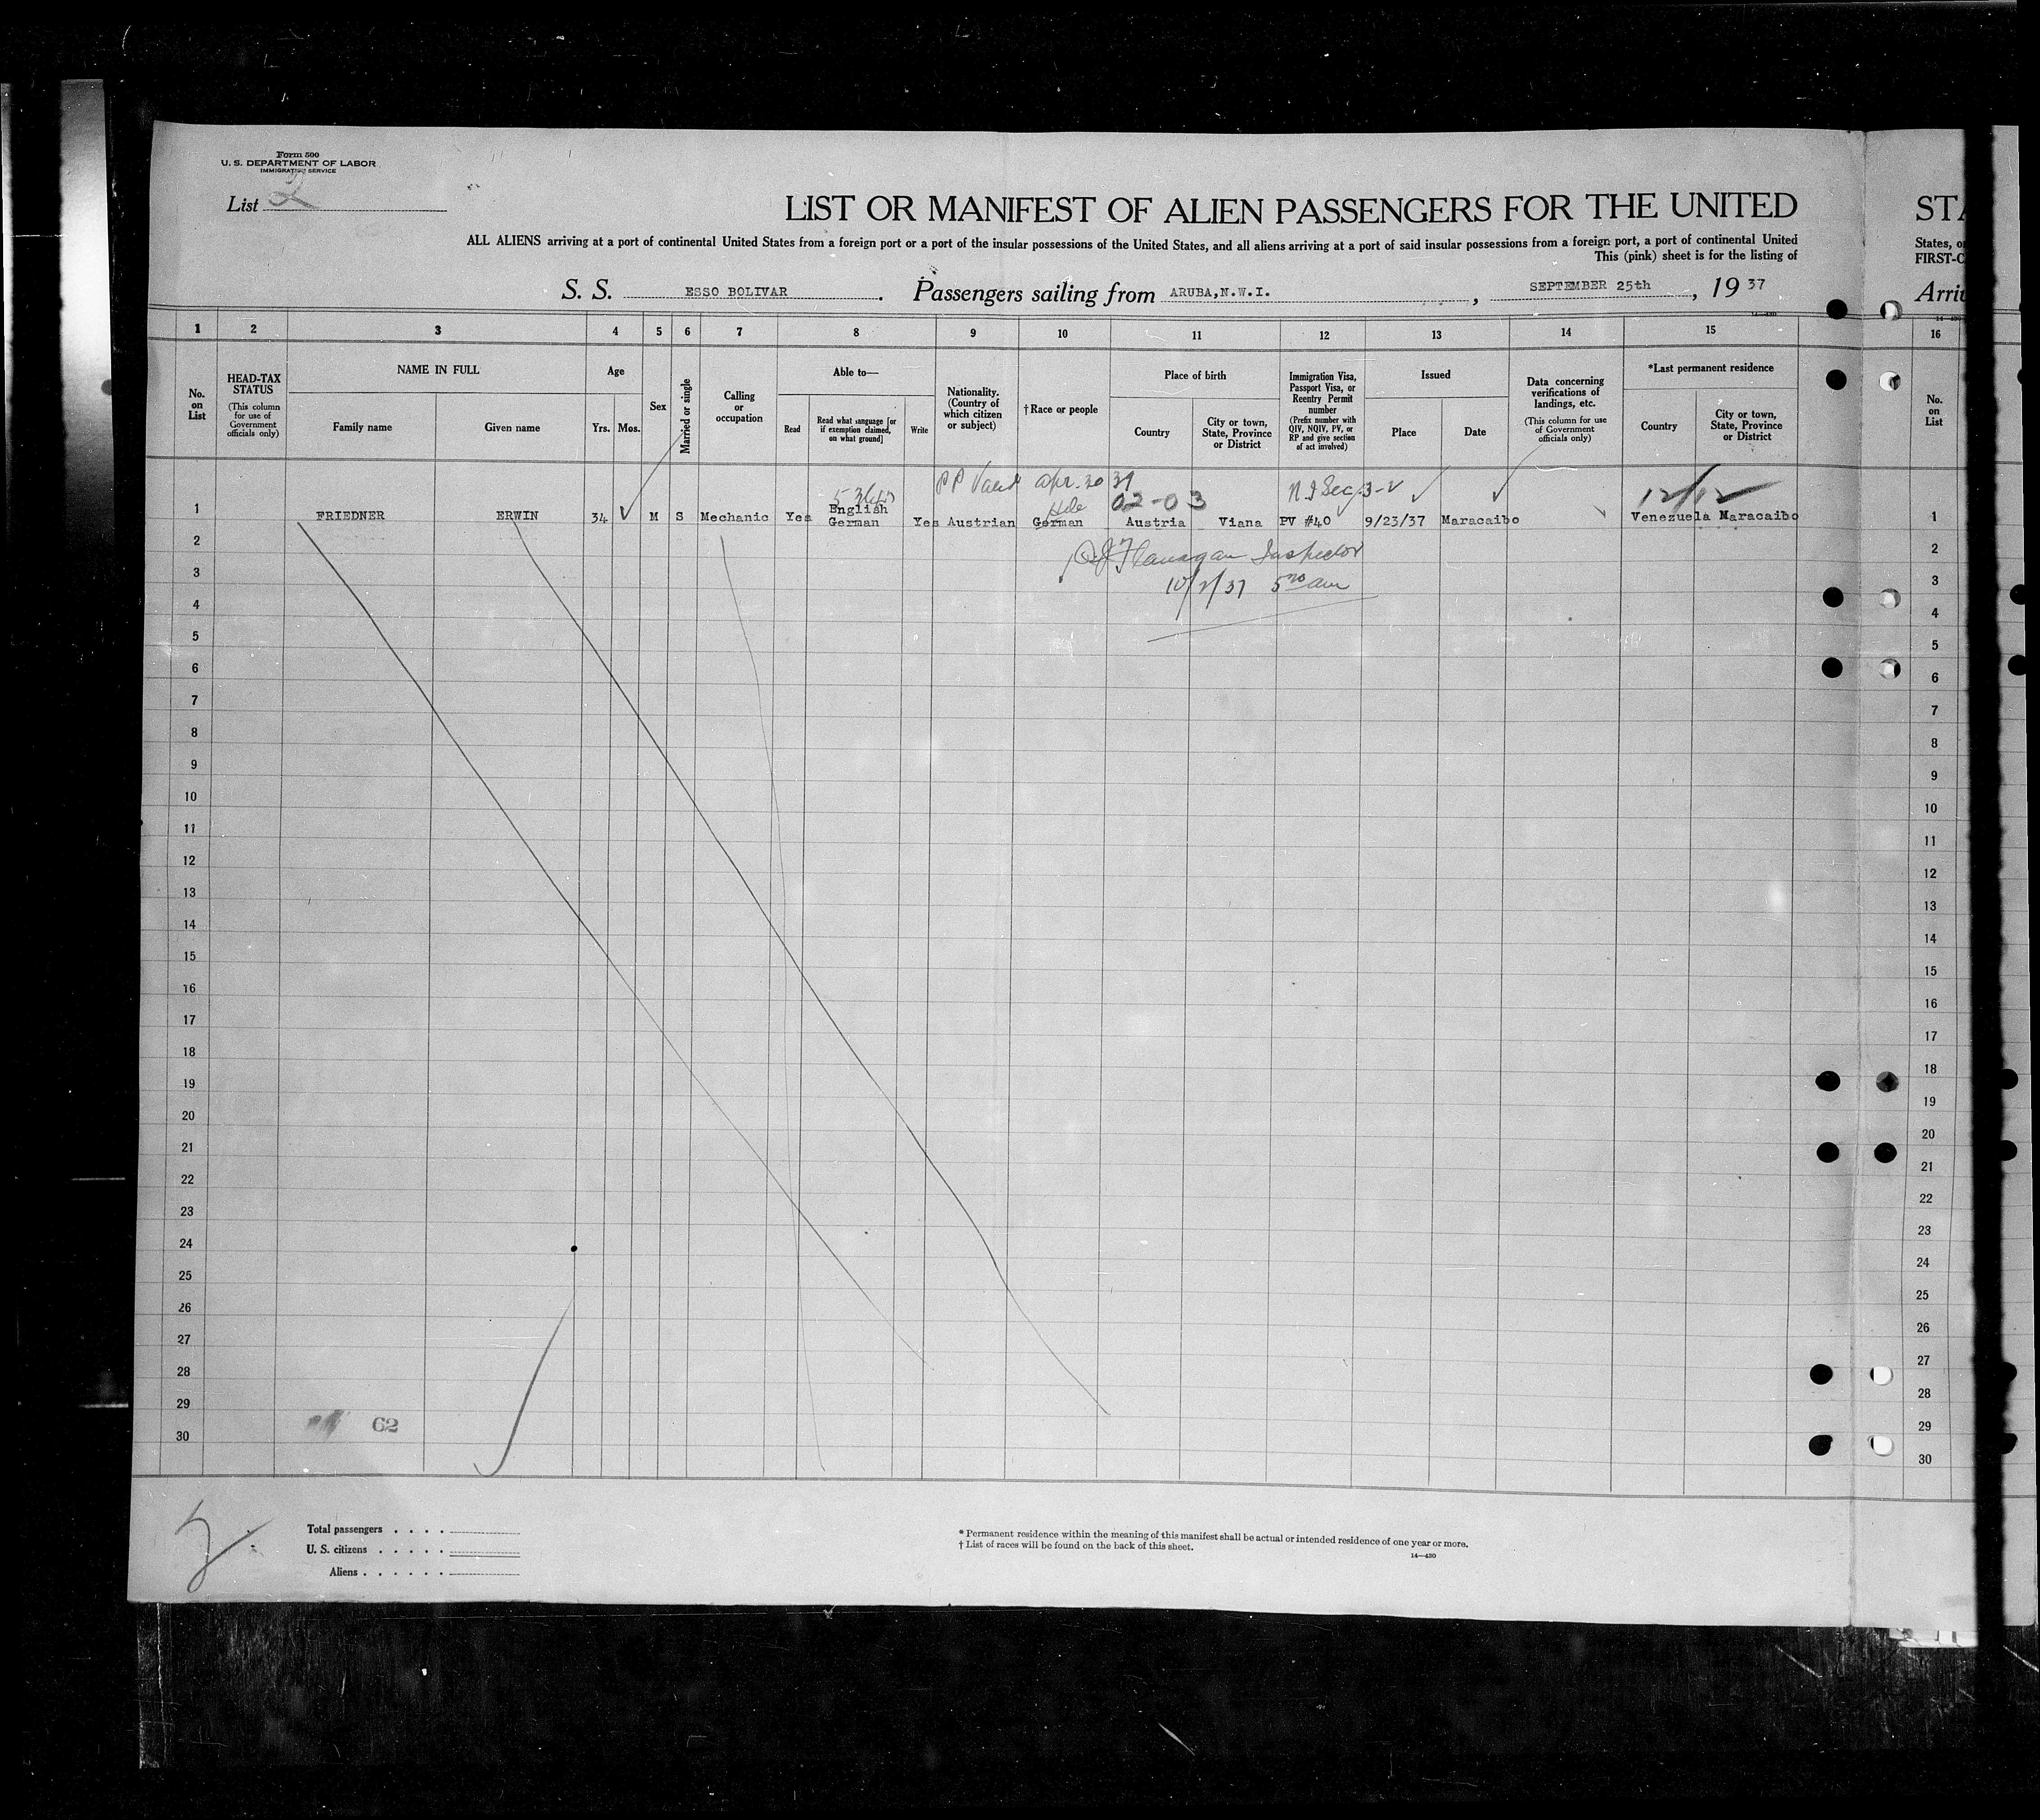 Form 500
U. S. DEPARTMENT OF LABOR
IMMIGRATION SERVICE
List 2
LIST OR MANIFEST OF ALIEN PASSENGERS FOR THE UNITED
STA
ALL ALIENS arriving at a port of continental United States from a foreign port or a port of the insular possessions of the United States, and all aliens arriving at a port of said insular possessions from a foreign port, a port of continental United
States, o
This (pink) sheet is for the listing of
FIRST-C
S. S. ESSO BOLIVAR. Passengers sailing from ARUBA,N.W.I., SEPTEMBER 25th, 19 37
Arri
14—430
1 2 3 4 5 6 7 8 9 10 11 12 13 14 15 16
No. on List
HEAD-TAX STATUS
(This column for use of Government officials only)
NAME IN FULL
Family name
Given name
Age
Yrs. Mos.
Sex
Married or single
Calling or occupation
Able to—
Read
Read what language [or if exemption claimed, on what ground]
Write
Nationality. (Country of which citizen or subject)
†Race or people
Place of birth
Country
City or town, State, Province or District
Immigration Visa, Passport Visa, or Reentry Permit number
(Prefix number with QIV, NQIV, PV, or RP and give section of act involved)
Issued
Place
Date
Data concerning verifications of landings, etc.
(This column for use of Government officials only)
*Last permanent residence
Country
City or town, State, Province or District
No. on List
PP Valid Apr. 30 39
02-03
N I Sec 3-2
12/12
1 FRIEDNER ERWIN 34 M S Mechanic Yes English German Yes Austrian German Austria Viana PV #40 9/23/37 Maracaibo Venezuela Maracaibo 1
2 Flanagan Inspector 2
3 10/2/37 5 20 am 3
4 4
5 5
6 6
7 7
8 8
9 9
10 10
11 11
12 12
13 13
14 14
15 15
16 16
17 17
18 18
19 19
20 20
21 21
22 22
23 23
24 24
25 25
26 26
27 27
28 28
29 62 29
30 30
Total passengers . . . .
U. S. citizens . . . . .
Aliens . . . . . .
* Permanent residence within the meaning of this manifest shall be actual or intended residence of one year or more.
† List of races will be found on the back of this sheet.
14—430